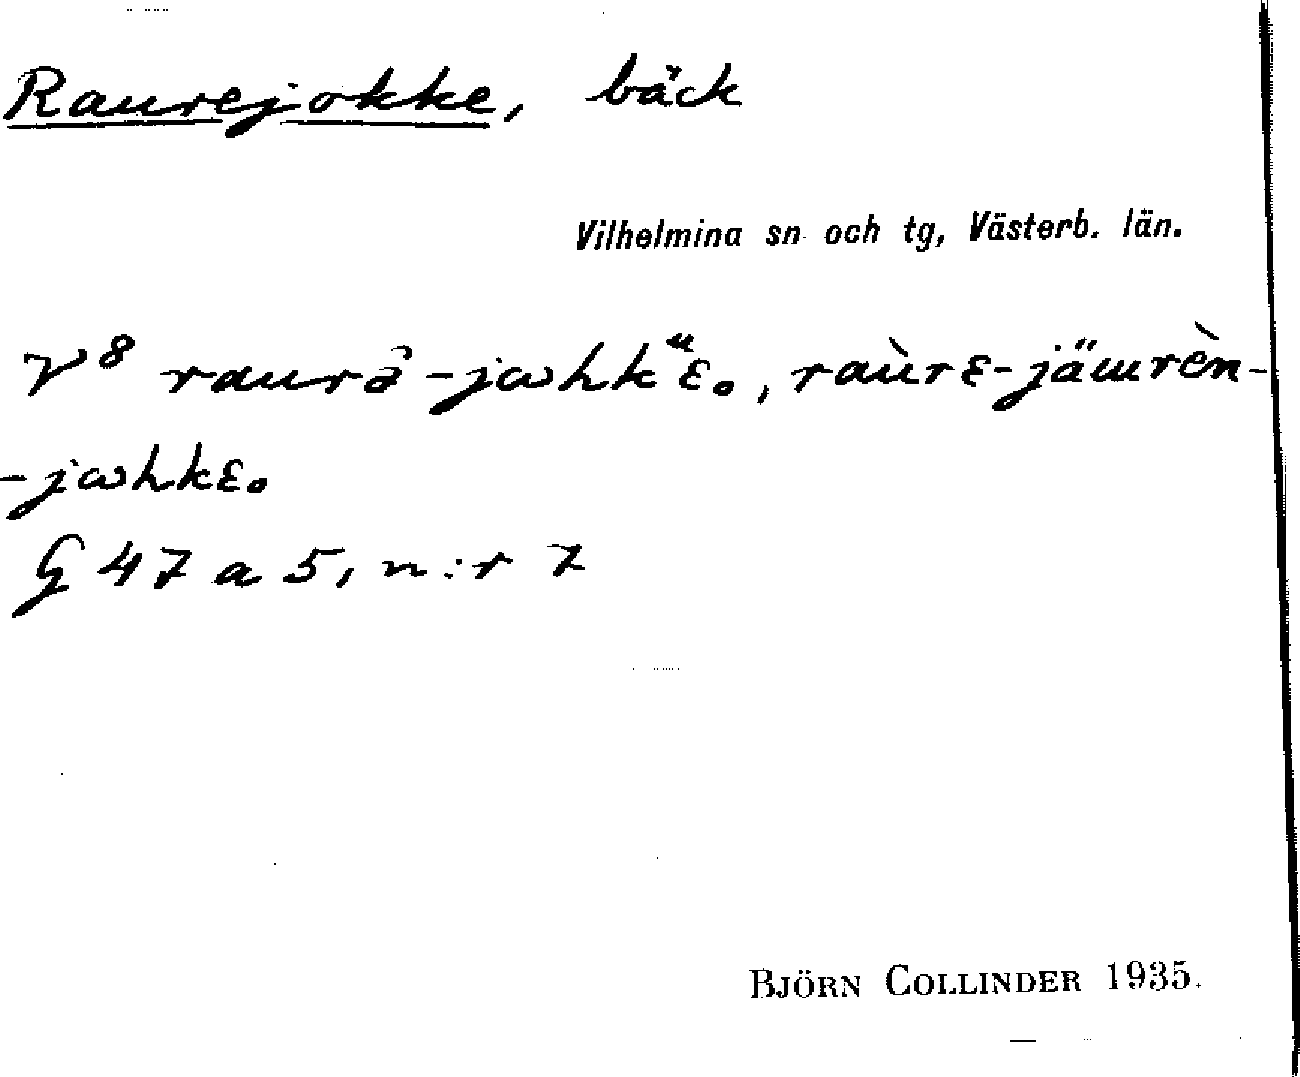 Raurejokke, bäck
Vilhelmina sn och tg, Västerb. län.
V⁸ raurə̂-jωhkᵘ̈ε˳, raùrε-jäɯrèn-
-jωhkε˳
G 47 a 5, n:r 7
BJÖRN COLLINDER 1935.